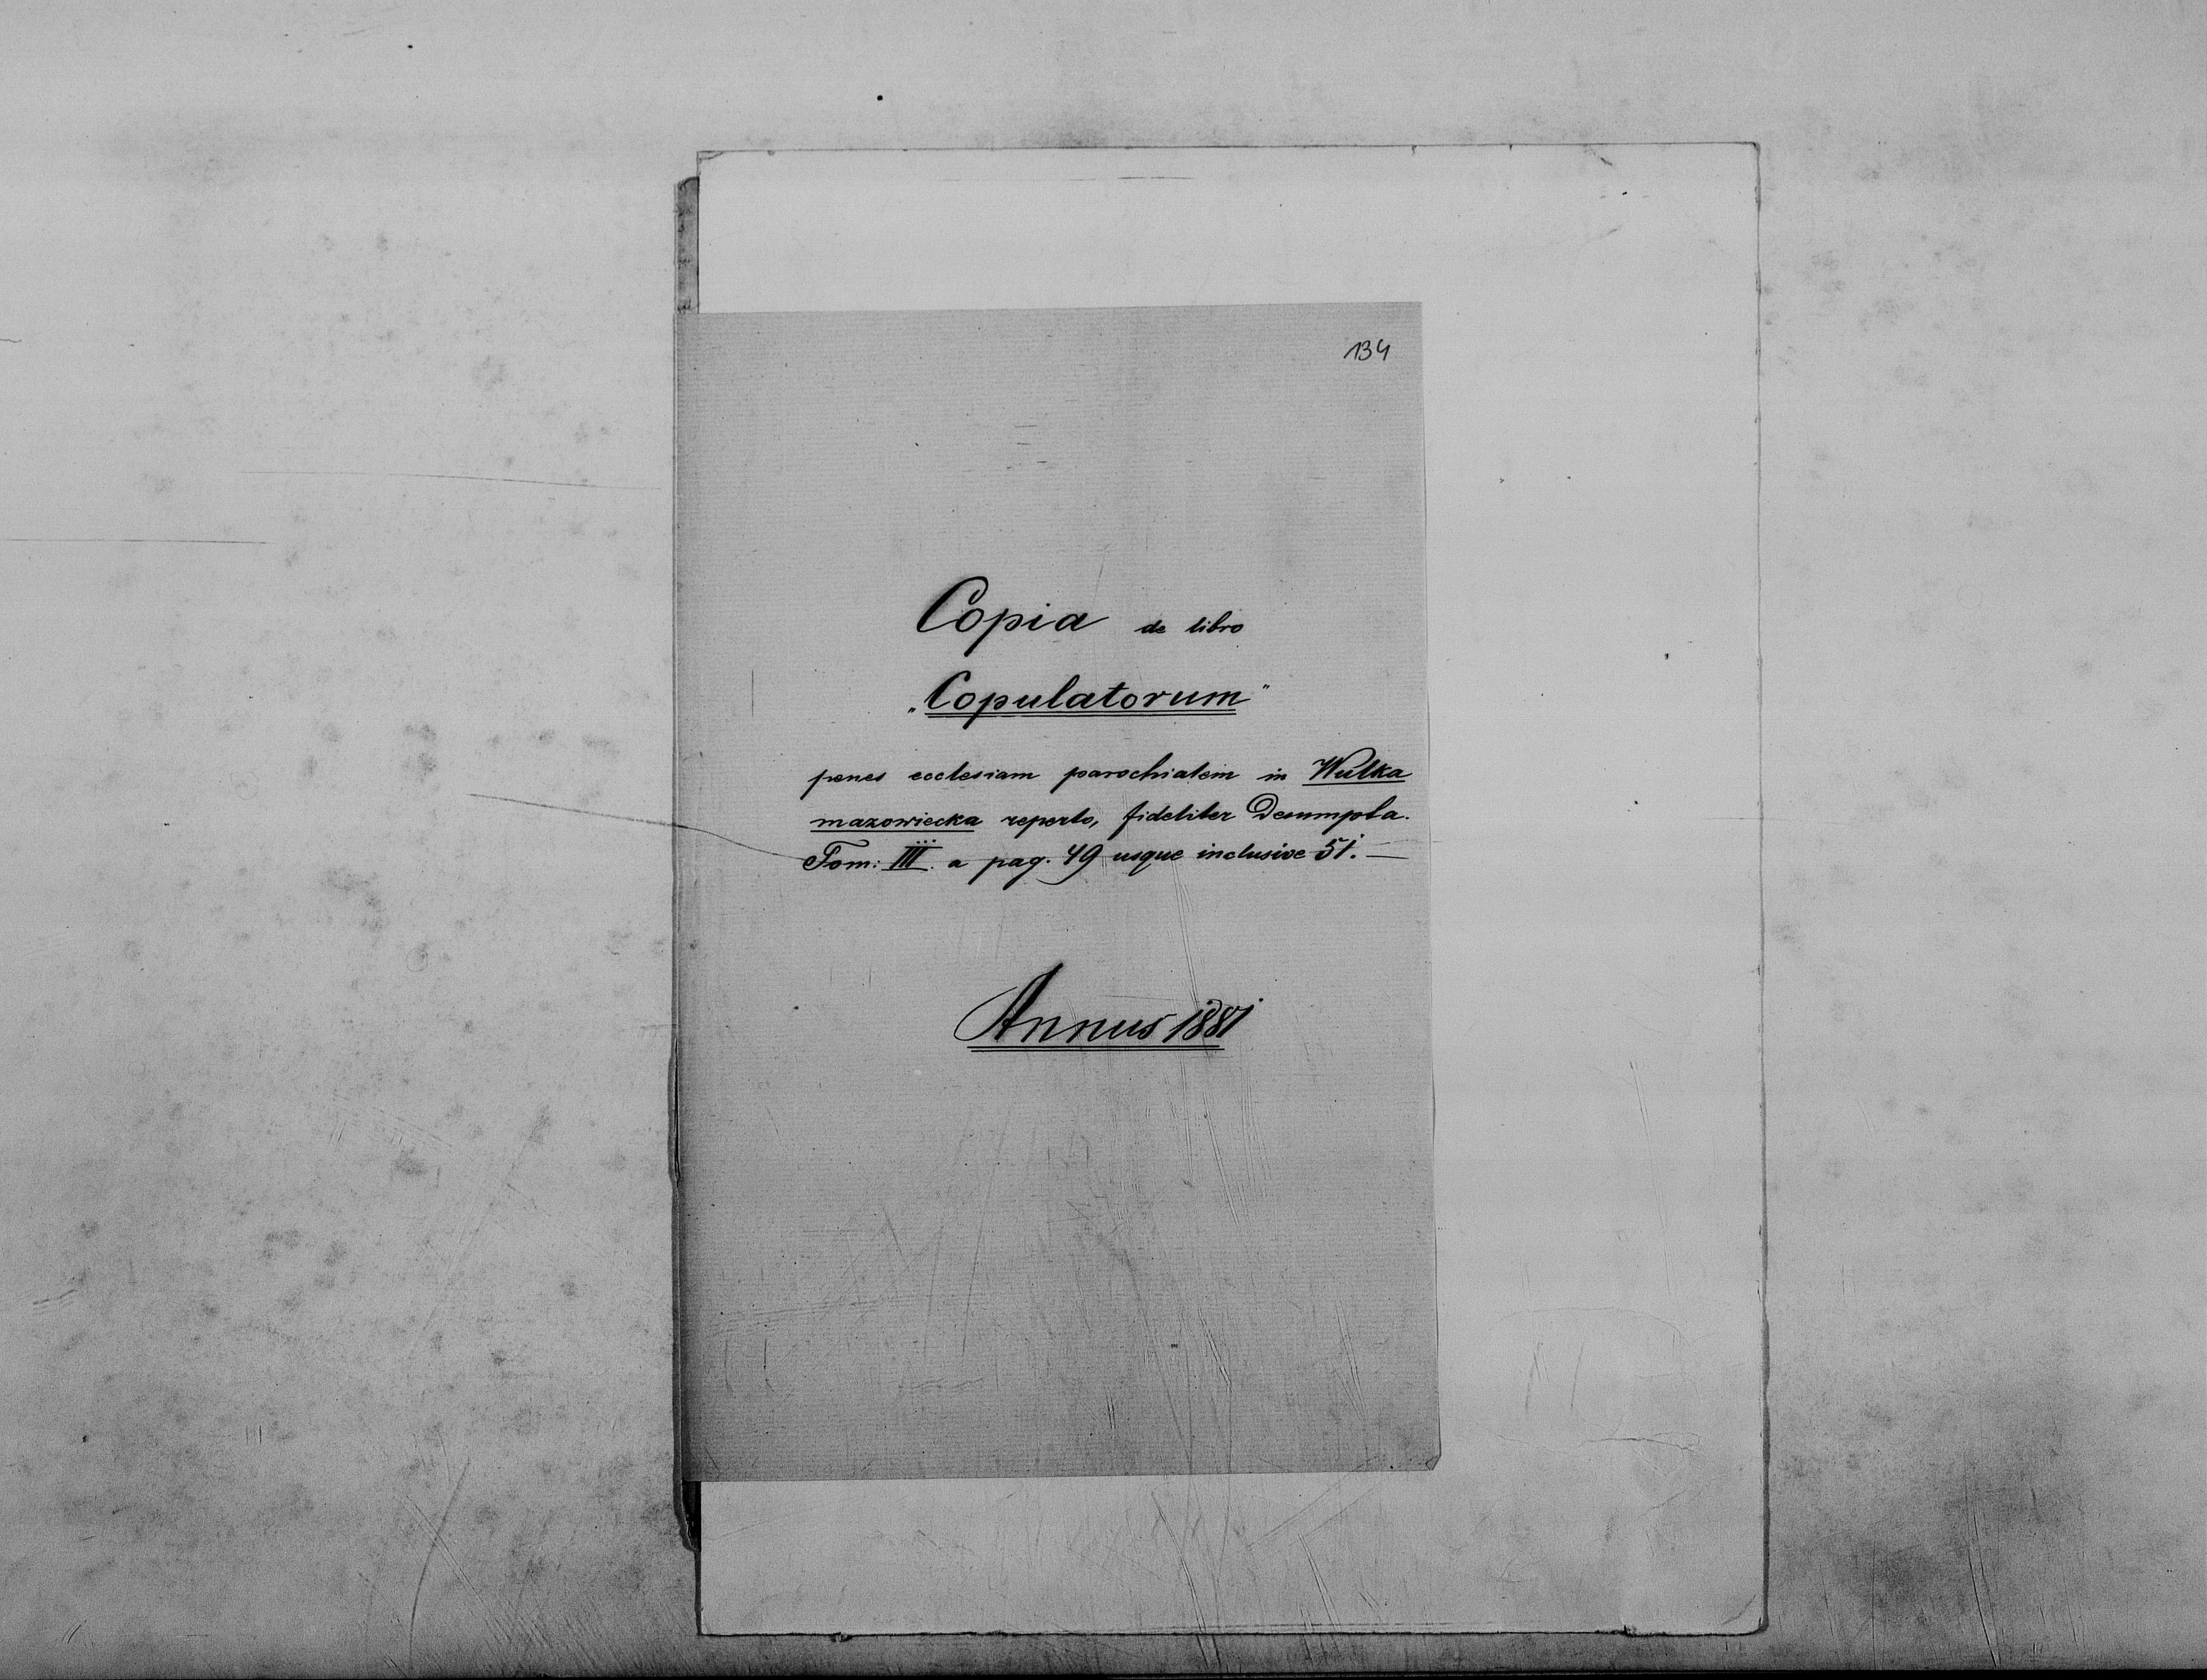 134
Copia de libro
„Copulatorum"
penes ecclesiam parochialem in Wulka
mazowiecka reperto, fideliter Desumpta.
Tom: III. a pag. 49 usque inclusive 51. —
Annus 1881